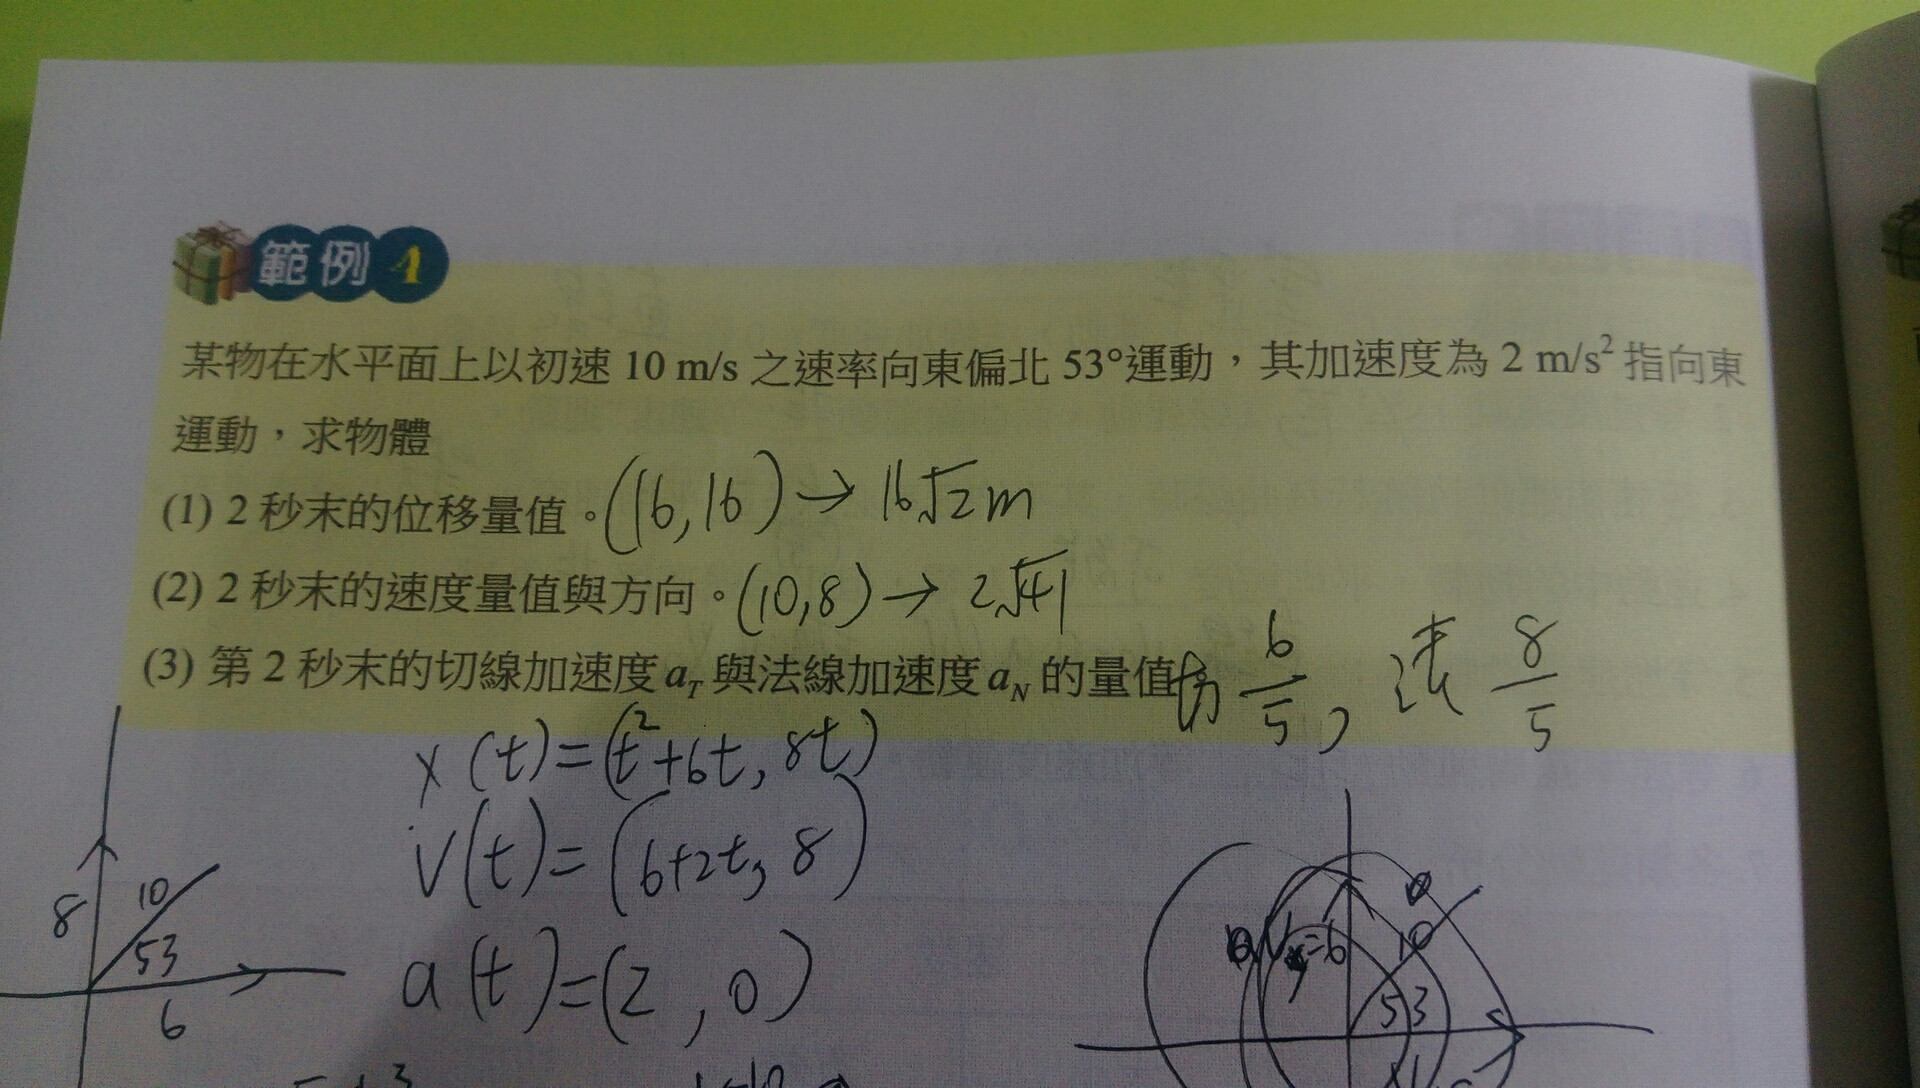 範例 1
某物在水平面上以初速 10 m/s 之速率向東偏北 53°運動，其加速度為 2 m/s² 指向東
運動，求物體
(1) 2 秒末的位移量值。(16,16) → 16√2 m
(2) 2 秒末的速度量值與方向。(10,8) → 2√41
(3) 第 2 秒末的切線加速度 a_T 與法線加速度 a_N 的量值 切 6/5, 法 8/5
x(t)=(t²+6t, 8t)
v(t)=(6+2t, 8)
a(t)=(2, 0)
8
10
53
6
=6
10
53